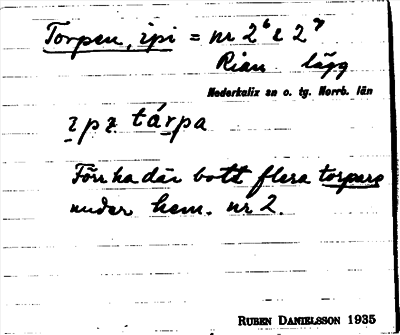 Torpen, ipi = nr 2⁶ e 2⁷
Rian lägg
Nederkalix sn o. tg. Norrb. län
ɪpɪ tárpa
Förr ha där bott flera torpare
under hem. nr 2.
RUBEN DANIELSSON 1935